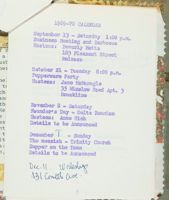 1969-70 CALENDAR
September 13 - Saturday 1:00 p.m.
Business Meeting and Barbecue
Hostess: Beverly
183 Pleasant Street
October 21 - Tuesday 8:00 p.m.
Tupperware Party
Hostess: Jane
35 Winslow Road Apt. 3
Brookline
November 8 - Saturday
Founder's Day - Delta Reunion
Hostess: Anne
Details to be Announced
December 7 - Sunday
The Messiah - Trinity Church
Supper on the Town
Details to be Announced
Dec. 11